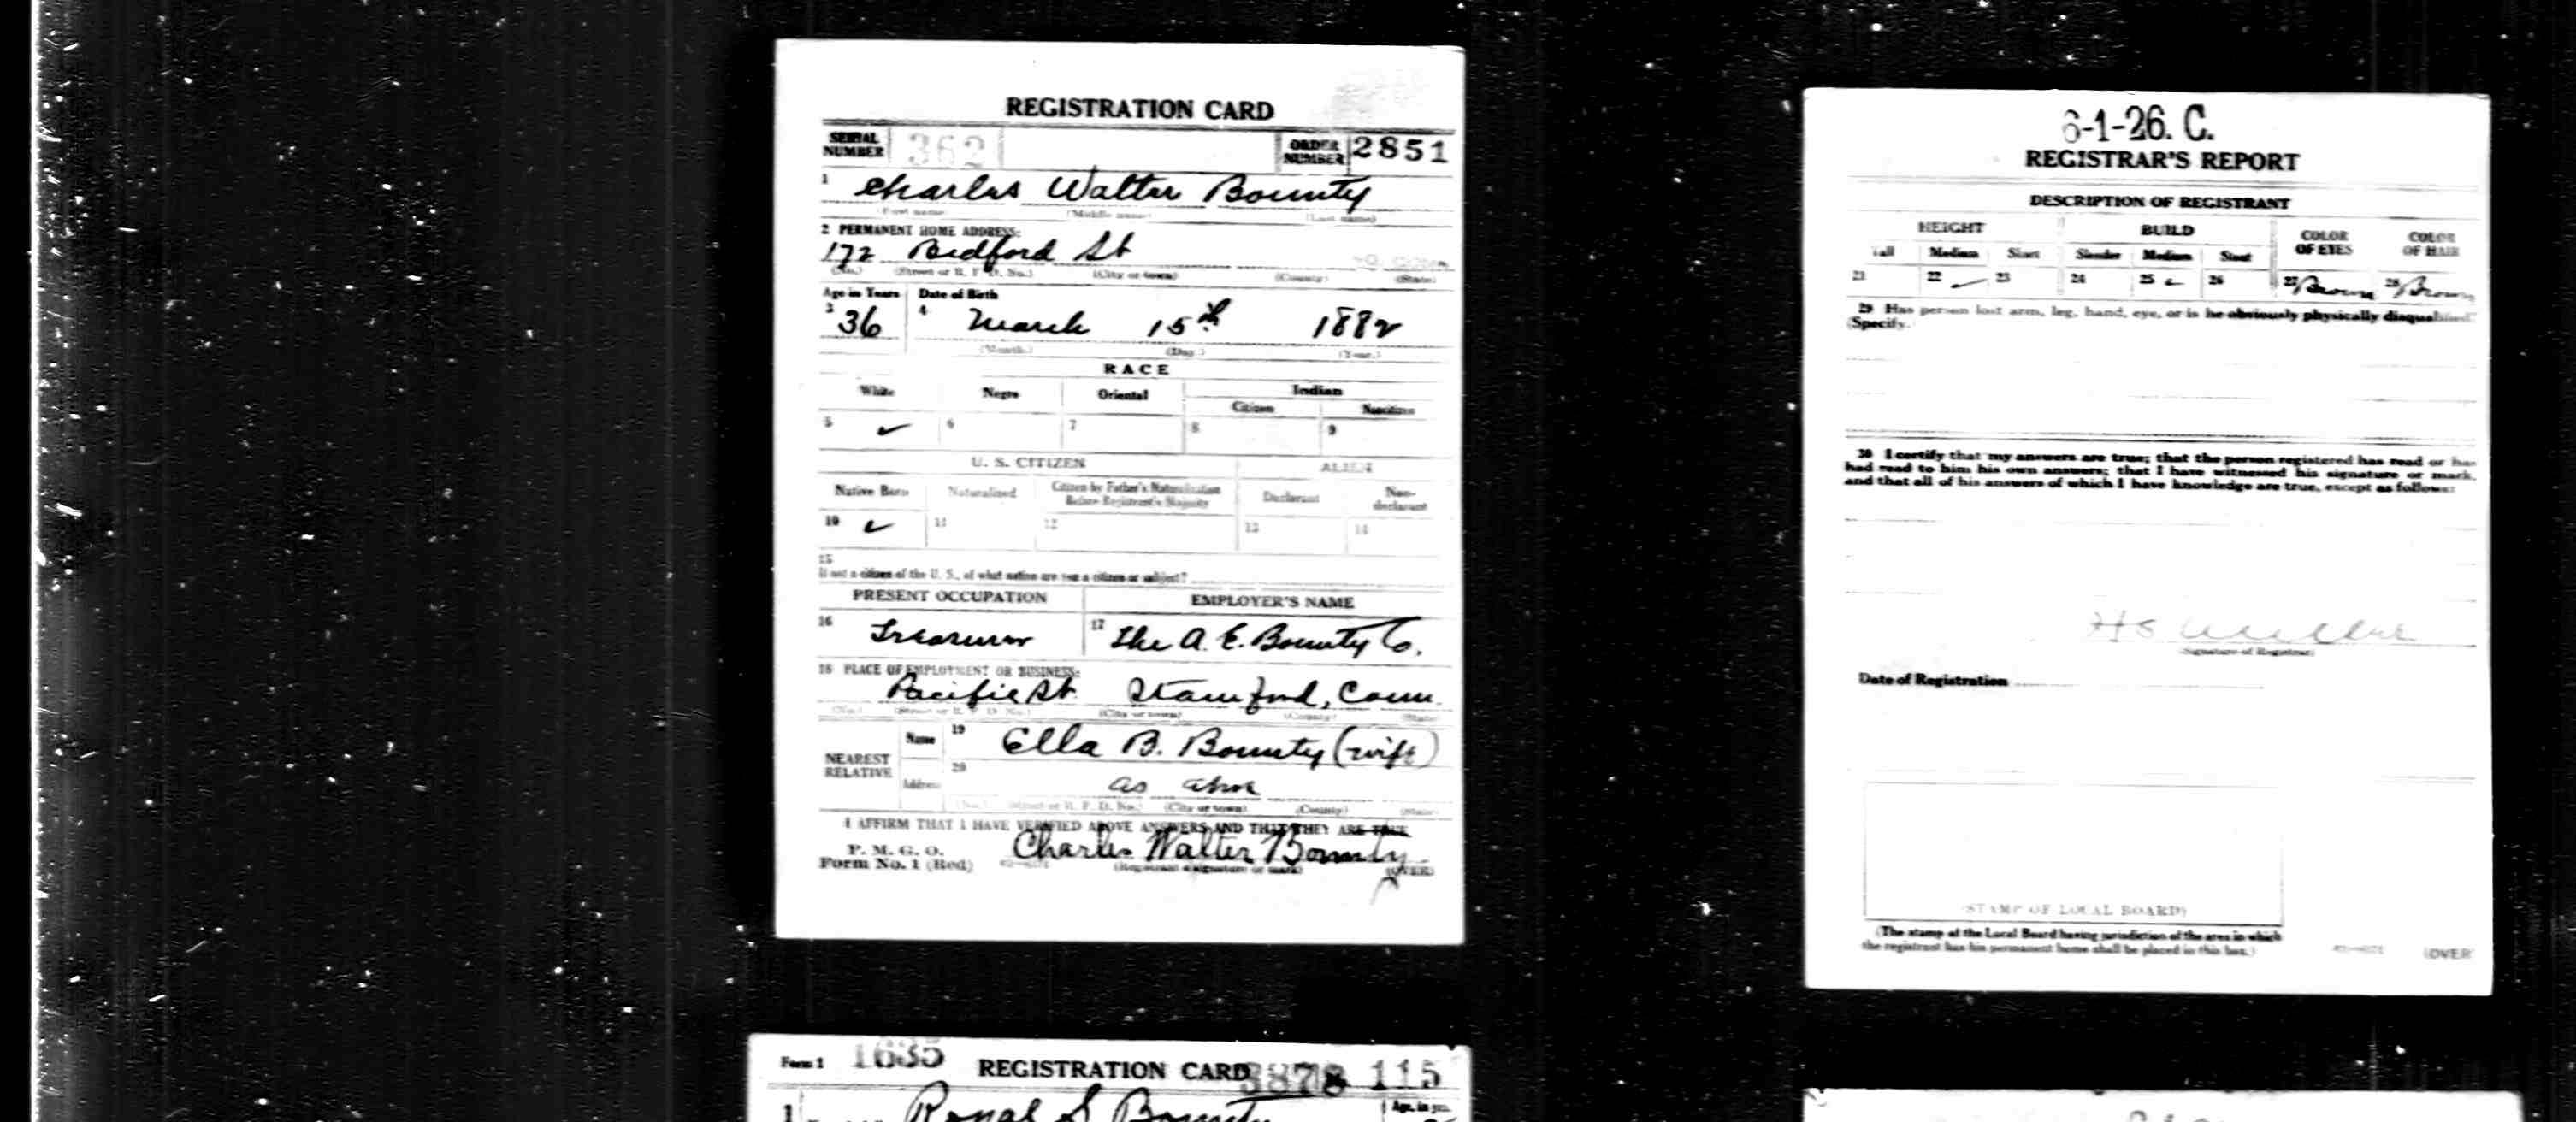 REGISTRATION CARD
SERIAL NUMBER 362 ORDER NUMBER 2851
1 Charles Walter Bounty
(First name) (Middle name) (Last name)
2 PERMANENT HOME ADDRESS:
172 Bedford St
(No.) (Street or R. F. D. No.) (City or town) (County) (State)
Age in Years Date of Birth
3 36 4 March 15th 1882
(Month.) (Day.) (Year.)
RACE
White Negro Oriental Indian
Citizen Noncitizen
5 ✓ 6 7 8 9
U. S. CITIZEN ALIEN
Native Born Naturalized Citizen by Father's Naturalization Before Registrant's Majority Declarant Non-declarant
10 ✓ 11 12 13 14
15
If not a citizen of the U. S., of what nation are you a citizen or subject?
PRESENT OCCUPATION EMPLOYER'S NAME
16 Treasurer 17 The A. E. Bounty Co.
18 PLACE OF EMPLOYMENT OR BUSINESS:
Pacific St. Stamford, Conn.
(No.) (Street or R. F. D. No.) (City or town) (County) (State)
NEAREST RELATIVE
Name 19 Ella B. Bounty (wife)
Address 20 as above
(No.) (Street or R. F. D. No.) (City or town) (County) (State)
I AFFIRM THAT I HAVE VERIFIED ABOVE ANSWERS AND THAT THEY ARE TRUE
P. M. G. O.
Form No. 1 (Red) Charles Walter Bounty
(Registrant's signature or mark) (OVER)
6-1-26. C.
REGISTRAR'S REPORT
DESCRIPTION OF REGISTRANT
HEIGHT BUILD COLOR OF EYES COLOR OF HAIR
Tall Medium Short Slender Medium Stout
21 22 ✓ 23 24 25 ✓ 26 27 Brown 28 Brown
29 Has person lost arm, leg, hand, eye, or is he obviously physically disqualified?
(Specify.)
30 I certify that my answers are true; that the person registered has read or has
had read to him his own answers; that I have witnessed his signature or mark,
and that all of his answers of which I have knowledge are true, except as follows:
(Signature of Registrar)
Date of Registration
(STAMP OF LOCAL BOARD)
(The stamp of the Local Board having jurisdiction of the area in which
the registrant has his permanent home shall be placed in this box.)
(OVER)
Form 1 1635 REGISTRATION CARD 3878 115
1 Bounty Age, in yrs.